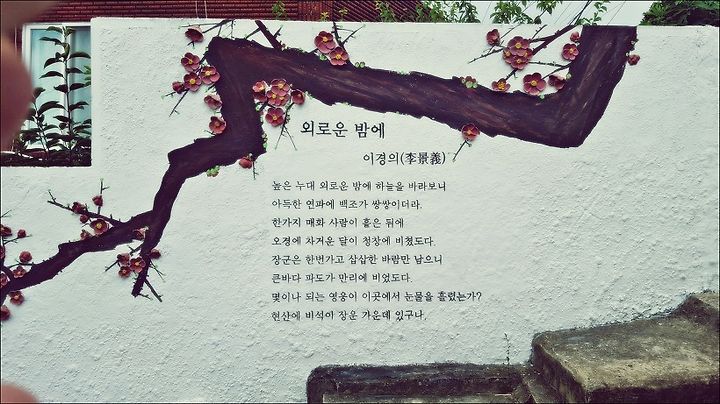 외로운 밤에
이경의(李景義)
높은 누대 외로운 밤에 하늘을 바라보니
아득한 연파에 백조가 쌍쌍이더라.
한가지 매화 사람이 흩은 뒤에
오경에 차거운 달이 청장에 비쳤도다.
장군은 한번가고 삽삽한 바람만 남으니
큰바다 파도가 만리에 비었도다.
몇이나 되는 영웅이 이곳에서 눈물을 흘렸는가?
현산에 비석아 장운 가운데 있구나.